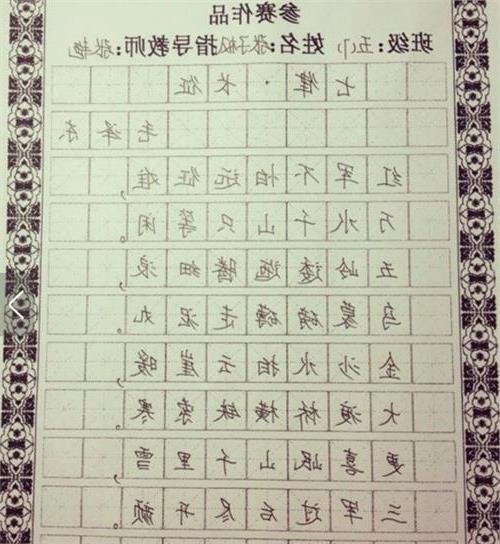 参赛作品
班级：五(1) 姓名：张子 指导教师：张艳
七律·长征
毛泽东
红军不怕远征难，
万水千山只等闲。
五岭逶迤腾细浪，
乌蒙磅礴走泥丸。
金沙水拍云崖暖，
大渡桥横铁索寒。
更喜岷山千里雪，
三军过后尽开颜。